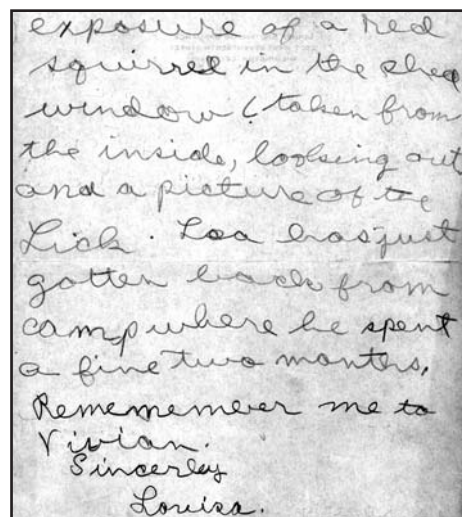 exposure of a red
squirrel in the shed
window (taken from
the inside, looking out
and a picture of the
Lick. Loa has just
gotten back from
camp where he spent
a fine two months.
Rememember me to
Vivian.
Sincerley
Louisa.